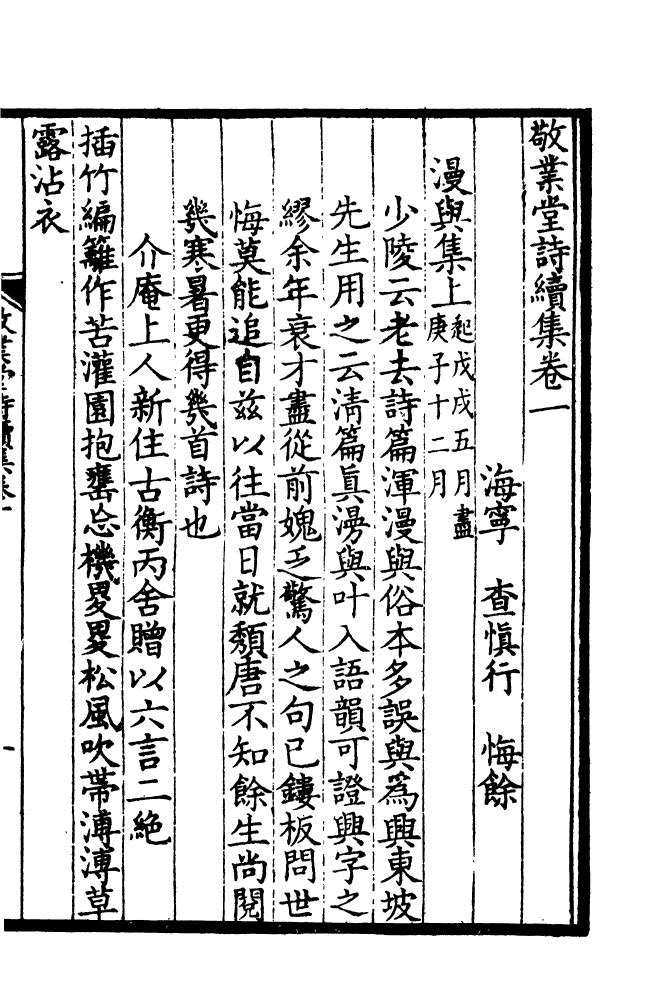 敬業堂詩續集卷一
海寧　查愼行　悔餘
漫與集上起戊戌五月盡庚子十二月
少陵云老去詩篇渾漫與俗本多誤與爲興東坡
先生用之云淸篇眞漫與叶入語韻可證興字之
繆余年衰才盡從前媿乏驚人之句已鏤板問世
悔莫能追自兹以往當日就頽唐不知餘生尚閱
幾寒暑更得幾首詩也
介庵上人新住古衡丙舍贈以六言二絶
插竹編籬作苦灌園抱罋忘機畟畟松風吹帶漙漙草
露沾衣
敬業堂詩續集卷一
一